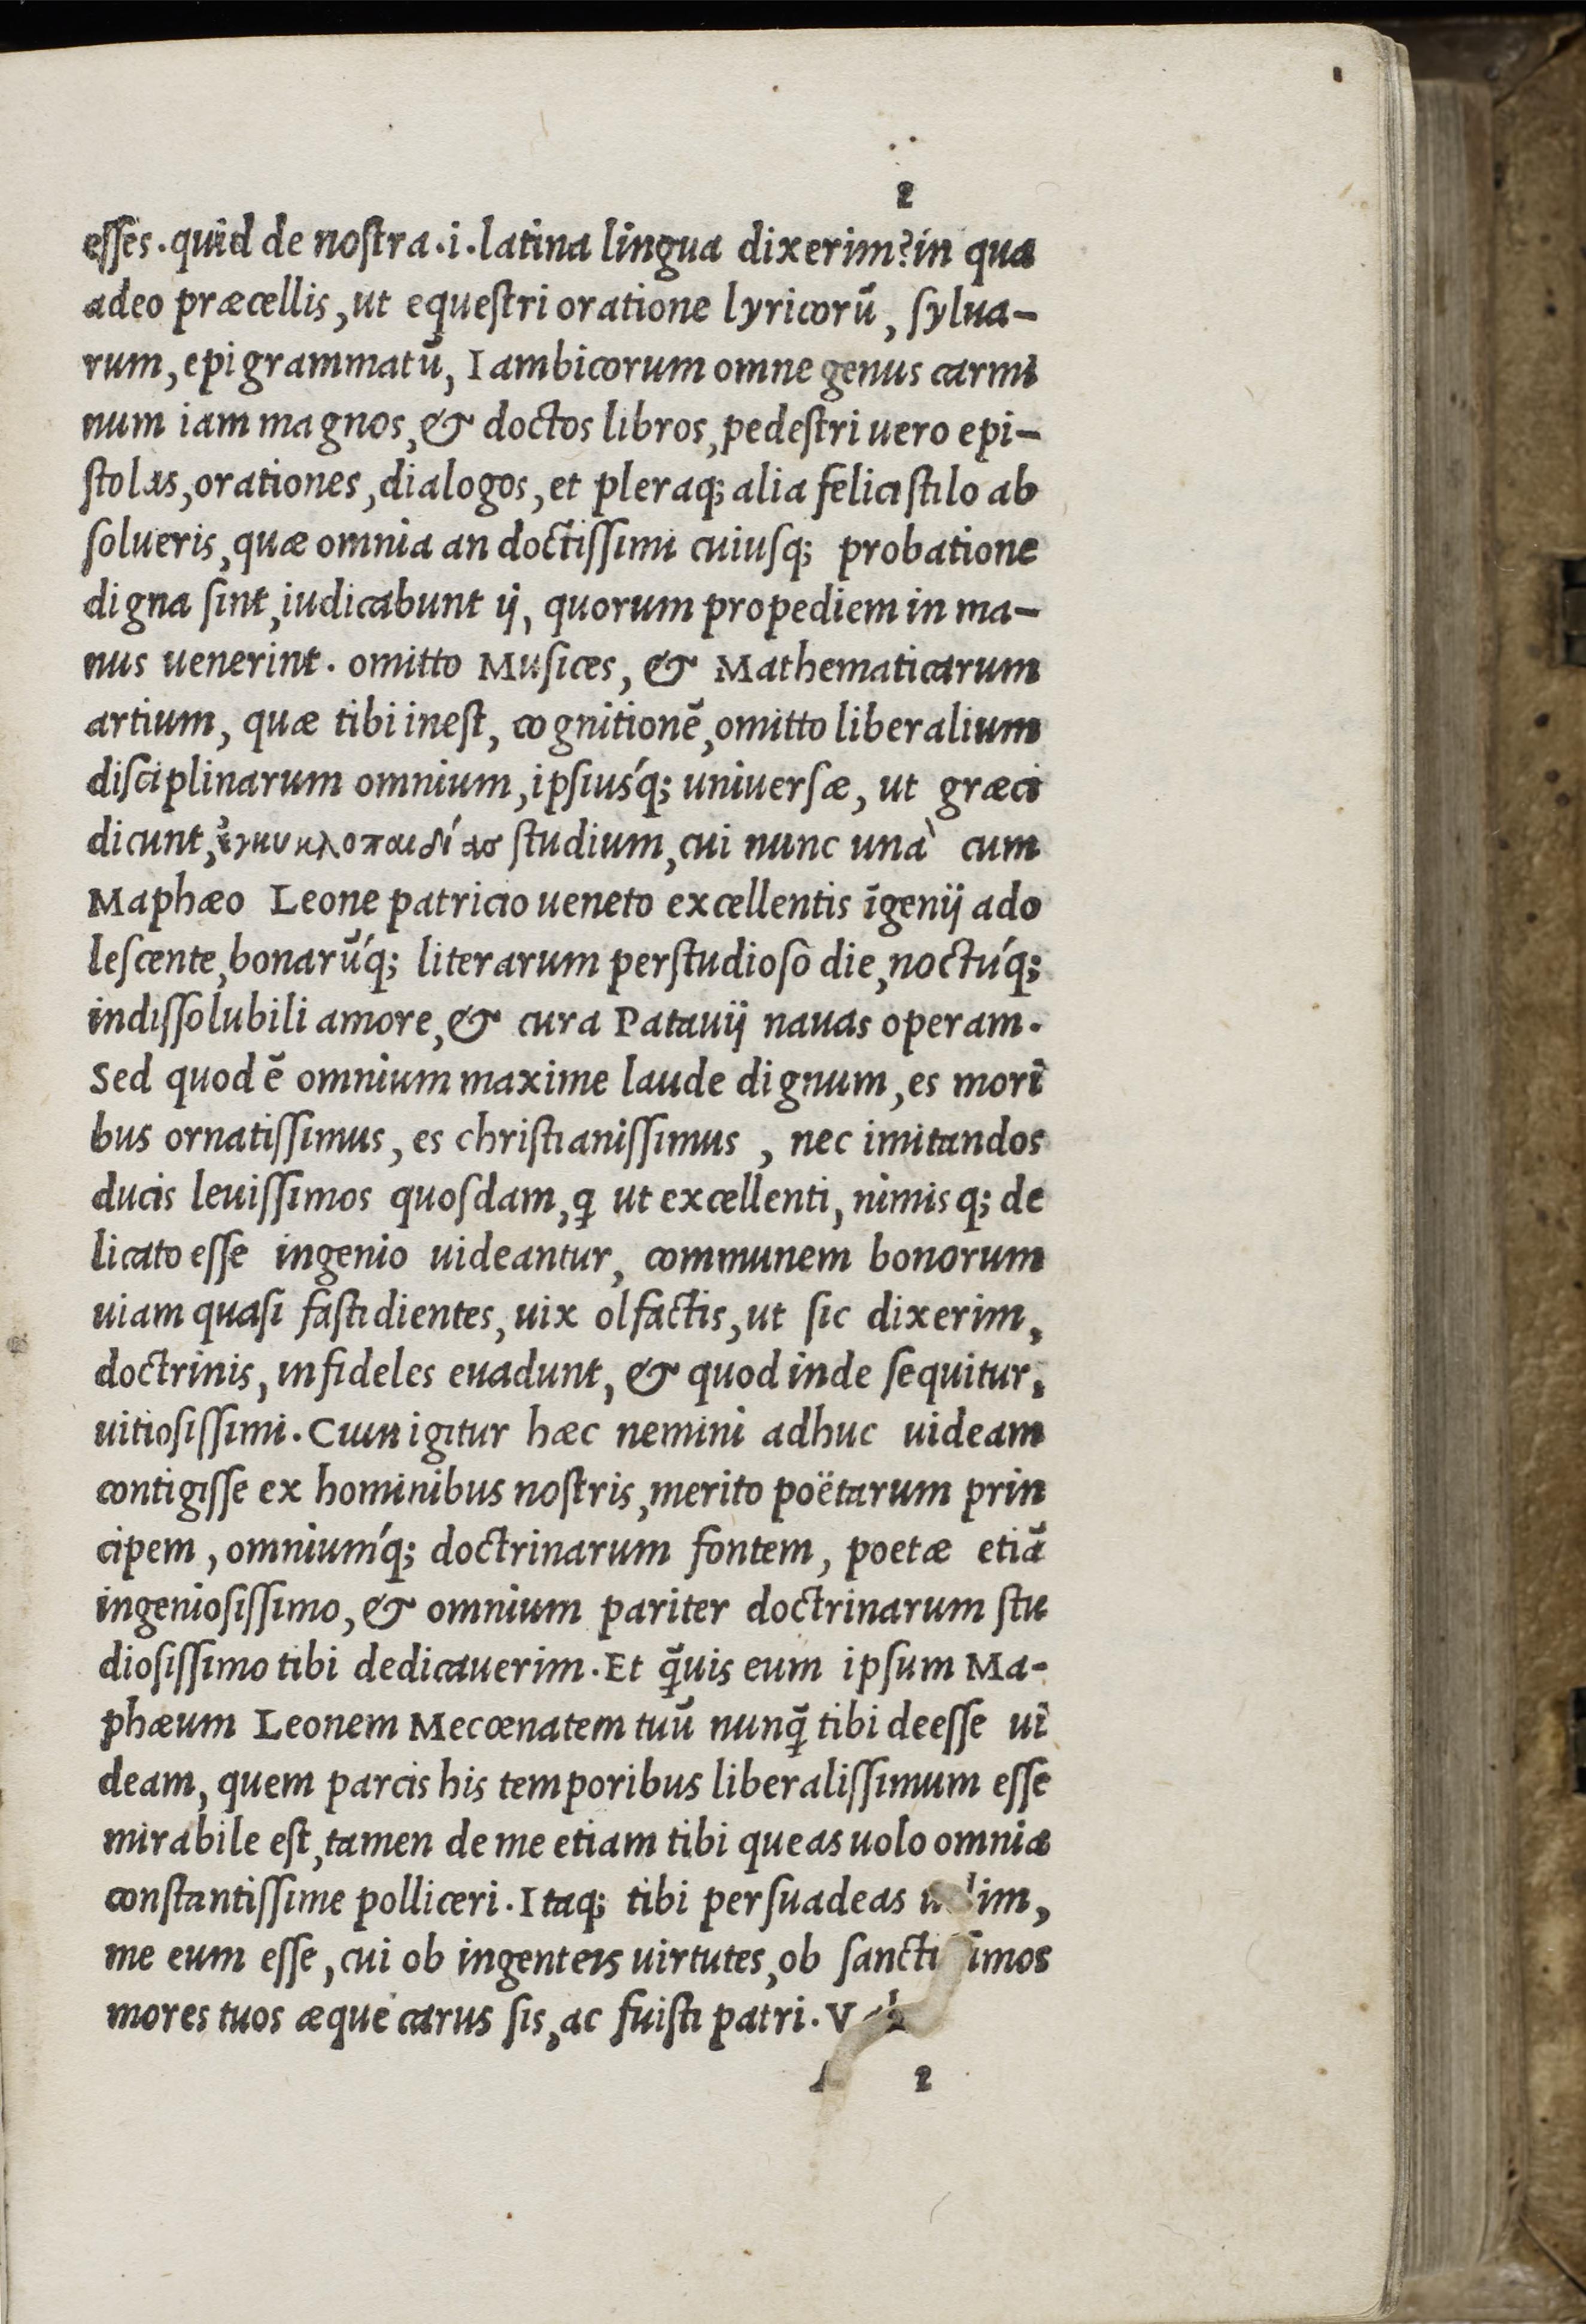 2
esſes.quid de noſtra.i.latina lingua dixerim?in qua
adeo præcellis, ut equeſtri oratione lyricorū, ſylua-
rum, epigrammatū, Iambicorum omne genus carmi
num iam magnos, & doctos libros, pedeſtri uero epi-
ſtolas, orationes, dialogos, et pleraq; alia felici ſtilo ab
ſolueris, quæ omnia an doctiſſimi cuiuſq; probatione
digna ſint, iudicabunt ij, quorum propediem in ma-
nus uenerint. omitto Muſices, & Mathematicarum
artium, quæ tibi ineſt, cognitionē, omitto liberalium
diſciplinarum omnium, ipſiusq́; uniuerſæ, ut græci
dicunt, ἐγκυκλοπαιδίασ ſtudium, cui nunc unà cum
Maphæo Leone patricio ueneto excellentis īgenij ado
leſcente, bonarūq́; literarum perſtudioſo die, noctúq;
indiſſolubili amore, & cura Patauij nauas operam.
Sed quod ē omnium maxime laude dignum, es mori
bus ornatiſſimus, es chriſtianiſſimus, nec imitandos
ducis leuiſſimos quoſdam, ꝗ ut excellenti, nimisq; de
licato eſſe ingenio uideantur, communem bonorum
uiam quaſi faſtidientes, uix olfactis, ut ſic dixerim,
doctrinis, infideles euadunt, & quod inde ſequitur,
uitioſiſſimi. Cum igitur hæc nemini adhuc uideam
contigiſſe ex hominibus noſtris, merito poëtarum prin
cipem, omniumq́; doctrinarum fontem, poetæ etiā
ingenioſiſſimo, & omnium pariter doctrinarum ſtu
dioſiſſimo tibi dedicauerim. Et ꝗ̃uis eum ipſum Ma-
phæum Leonem Mecœnatem tuū nunꝗ̃ tibi deeſſe ui
deam, quem parcis his temporibus liberaliſſimum eſſe
mirabile eſt, tamen de me etiam tibi queas uolo omnia
conſtantiſſime polliceri. Itaq; tibi perſuadeas
me eum eſſe, cui ob ingenteis uirtutes, ob ſanctiſſimos
mores tuos æque carus ſis, ac fuiſti patri. Vale
2